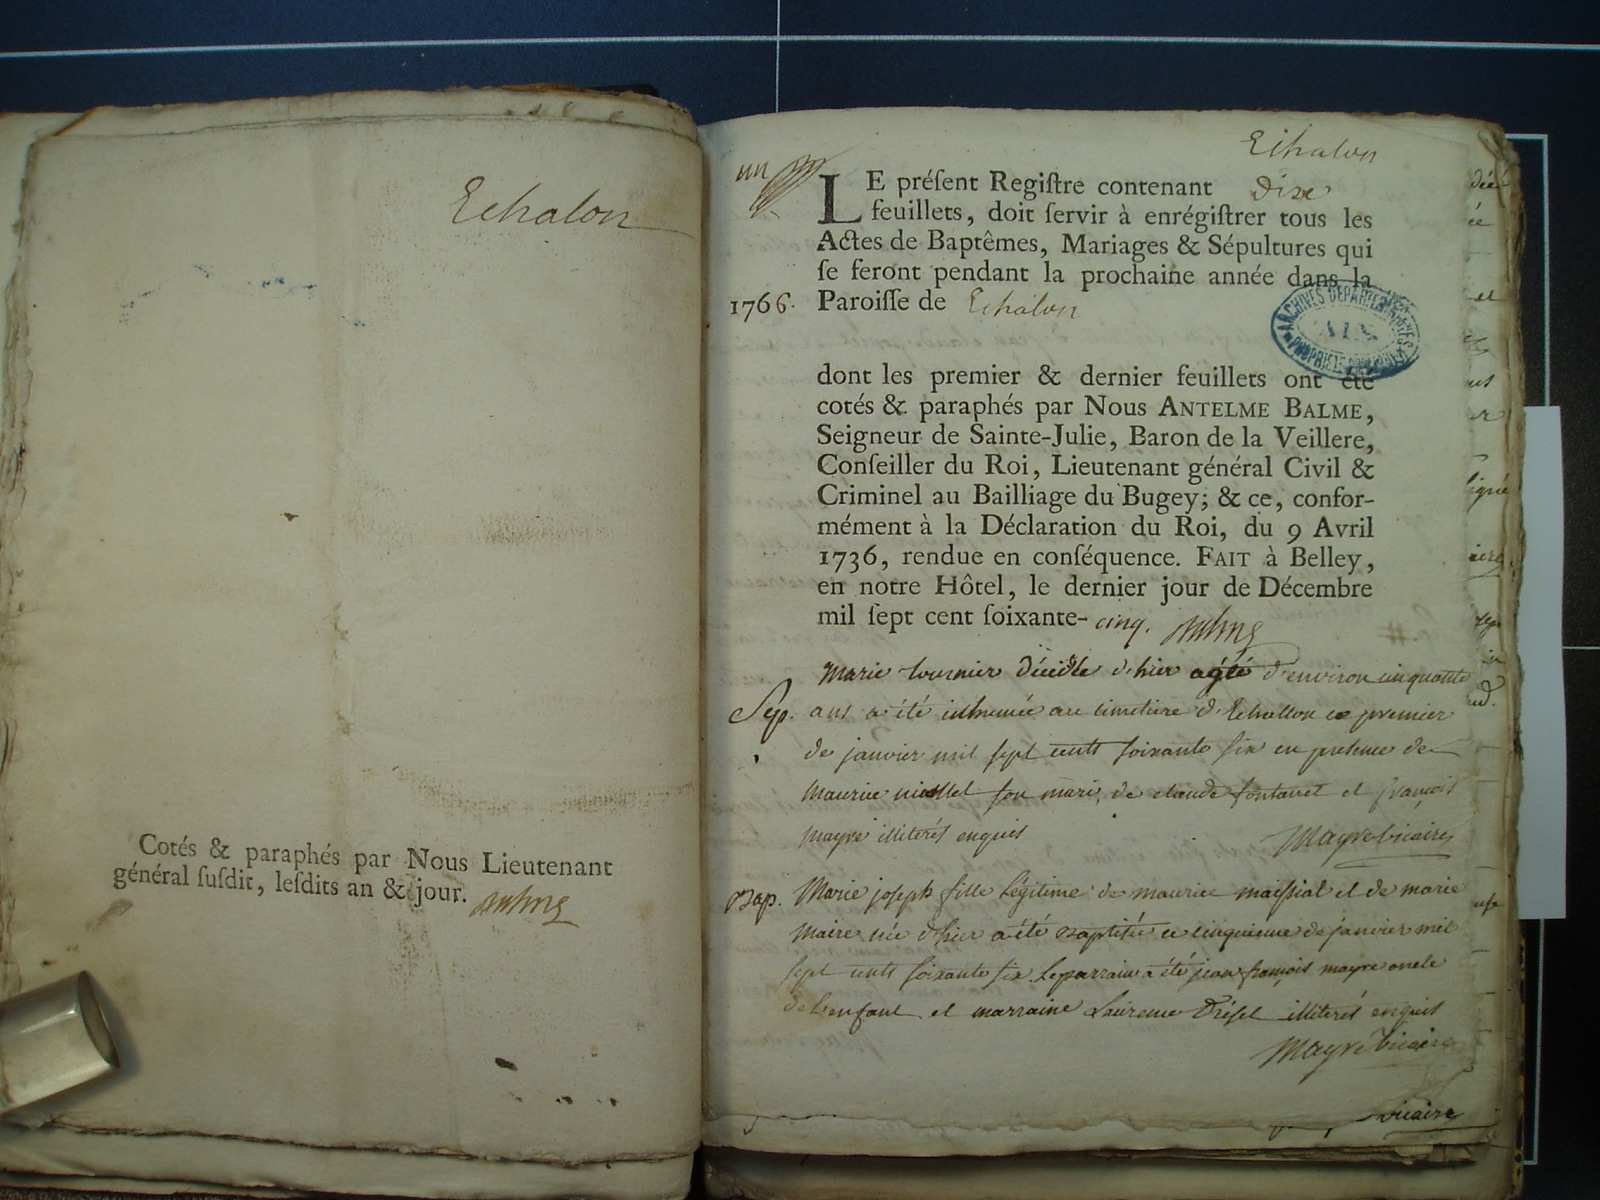 Echalon
Cotés & paraphés par Nous Lieutenant
général ſuſdit, leſdits an & jour.
Echalon
un
LE préſent Regiſtre contenant dix
feuillets, doit ſervir à enrégiſtrer tous les
Actes de Baptêmes, Mariages & Sépultures qui
ſe feront pendant la prochaine année dans la
1766. Paroiſſe de Echalon
ARCHIVES DEPARTEMENTALES
AIN
dont les premier & dernier feuillets ont été
cotés & paraphés par Nous ANTELME BALME,
Seigneur de Sainte-Julie, Baron de la Veillere,
Conſeiller du Roi, Lieutenant général Civil &
Criminel au Bailliage du Bugey; & ce, confor-
mément à la Déclaration du Roi, du 9 Avril
1736, rendue en conſéquence. FAIT à Belley,
en notre Hôtel, le dernier jour de Décembre
mil ſept cent ſoixante- cinq.
Marie tournier décédée d'hier agée d'environ cinquante
Sep. ans a été inhumée au cimetiere d'Echallon ce premier
de janvier mil sept cents soixante six en presence de
maurice niollet son mari, de claude fontanet et françois
mayre illiterés enquis Mayre vicaire
Bap. Marie joseph fille légitime de maurice maissiat et de marie
maire née d'hier a été baptisée ce cinquieme de janvier mil
sept cents soixante six le parrain a été jean françois mayre oncle
de l'enfant et marraine Laurence illiterés enquis
Mayre vicaire
vicaire